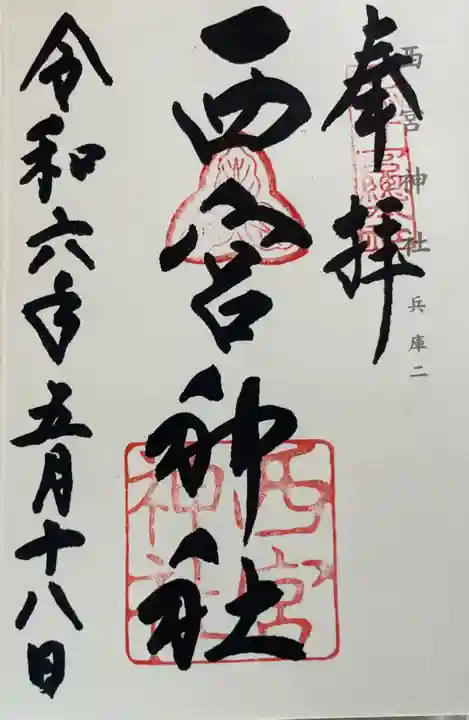 西宮神社 兵庫二
奉拝
西宮神社
西宮神社
令和六年五月十八日